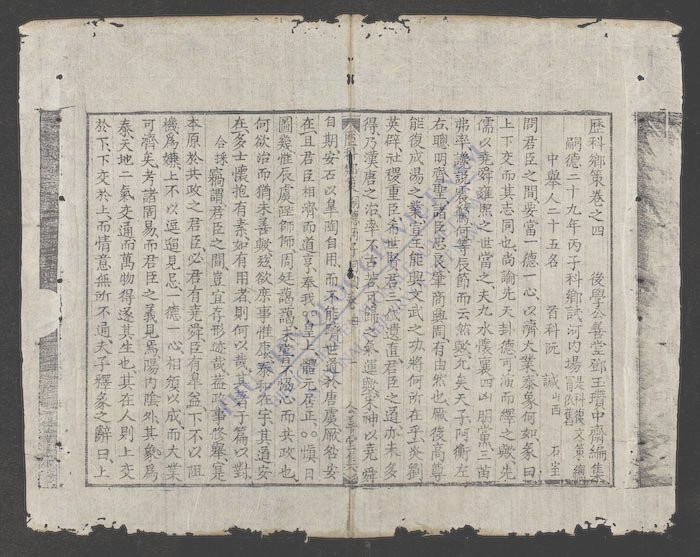 歷科鄉策卷之四 後學公善堂鄧玉瓚中齋編集
嗣德二十九年丙子科鄉試河內場
中舉人二十五名 首科阮 誠山西 石室
問君臣之間要當一德一心以濟大業泰象何如象曰
上下交而其志同也尚諭先天卦德可演而繹之歟先
儒以堯舜雍熙之世當之夫九水懷襄四凶朋黨三苗
弗率讒說震驚何等辰節而云然歟久矣天子阿衡左
右聰明齊聖諸臣忠良肇商興周有由然也厥後高尊
能復成湯之業宣王能興文武之功將何所在乎炎劉
英辟社稷重臣希世賢君三代遺直君臣之道亦未多
得乃漢唐之治率不古若其歸之氣運歟宋神以堯舜
自期安石以皋陶自用而不能躋世道於唐虞厥咎安
在且君臣相濟而道亨奉我皇上體元居正
圖幾惟辰虞陛師師周廷藹藹未嘗不協心而共政也
何欲治而猶未善歟玆欲庶事惟康泰和在宇其道安
在多士懷抱有素如有用者則何以哉其著于篇以對
合採 竊謂君臣之間豈宜存形迹哉蓋政事修舉寔
本原於共政之君臣必君有堯舜臣有皋益下不以阻
機爲嫌上不以逕遛見忌一德一心相須以成而大業
可濟矣考諸周易而君臣之義見焉陽內陰外其象爲
泰天地二氣交通而萬物得遂其生也其在人則上交
於下下交於上而情意無所不通夫子釋彖之辭曰上